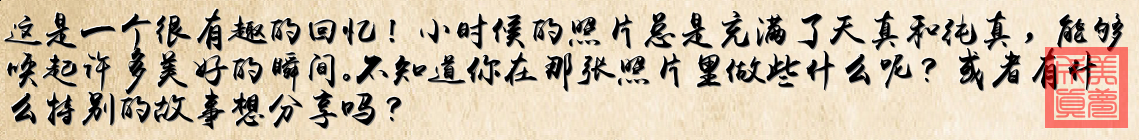 这是一个很有趣的回忆！小时候的照片总是充满了天真和纯真，能够
唤起许多美好的瞬间。不知道你在那张照片里做些什么呢？或者有什
么特别的故事想分享吗？